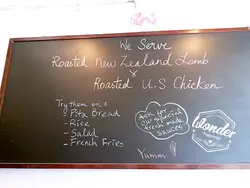 We Serve
Roasted New Zealand Lamb
&
Roasted U.S Chicken
Try them on :
Pita Bread
Rice
Salad
French Fries
Ask for
our special
fresh made
sauces
Yumm!
Wonder